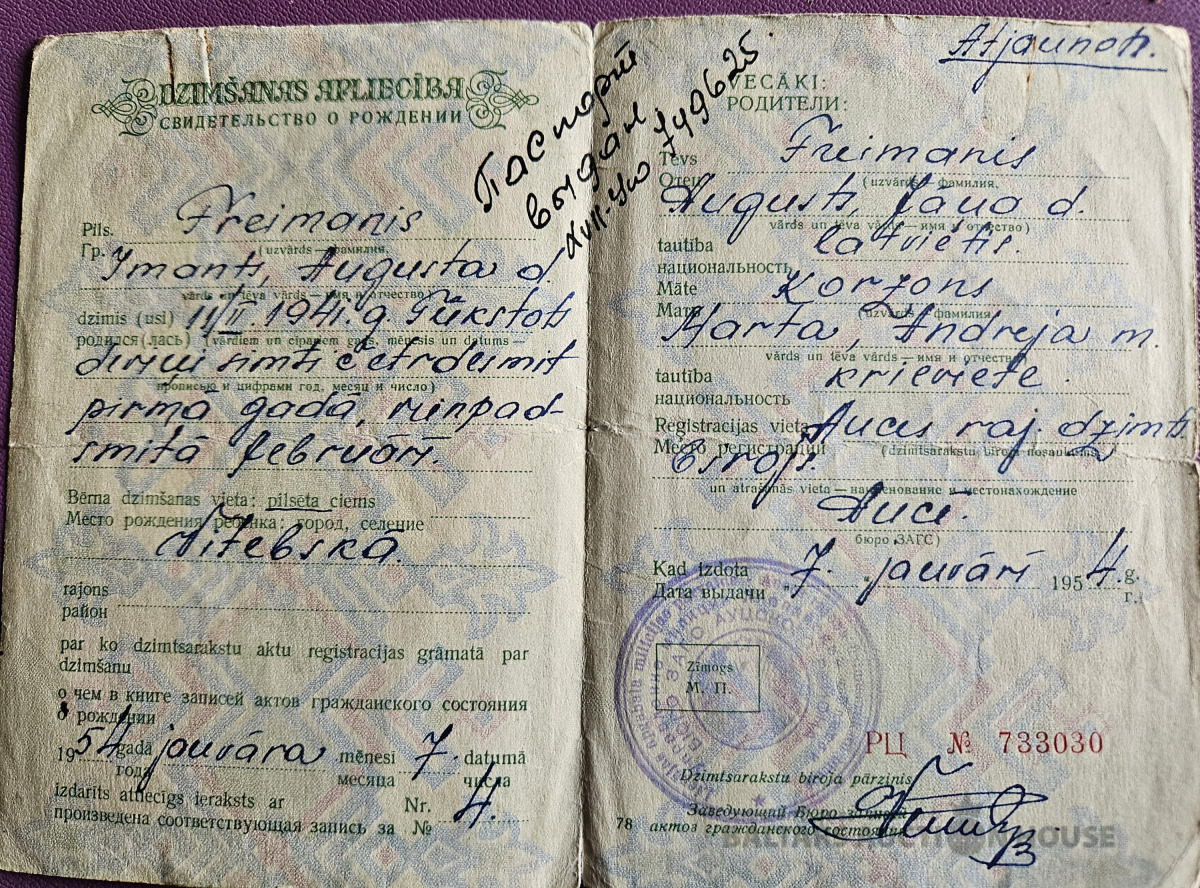 DZIMŠANAS APLIECĪBA
СВИДЕТЕЛЬСТВО О РОЖДЕНИИ
Паспорт
выдан
XVIII-УЮ 749625
Pils. Freimanis
Гр. (uzvārds — фамилия,
Imants, Augusta d.
vārds un tēva vārds — имя и отчество)
dzimis (usi) 11/II. 1941. g. Tūkstots
родился(лась) (vārdiem un cipariem gads, mēnesis un datums —
deviņi simti četrdesmit
прописью и цифрами год, месяц и число)
pirmā gadā, vienpad-
smitā februārī.
Bērna dzimšanas vieta: pilsēta ciems
Место рождения ребенка: город, селение
Vitebskā.
rajons
район
par ko dzimtsarakstu aktu reģistrācijas grāmatā par
dzimšanu
о чем в книге записей актов гражданского состояния
о рождении
1954 gadā janvāra mēnesi 7. datumā
год месяца числа
izdarīts attiecīgs ieraksts ar Nr. 4.
произведена соответствующая запись за №
Atjaunots.
VECĀKI:
РОДИТЕЛИ:
Tēvs Freimanis
Отец (uzvārds — фамилия,
Augusts, Jāņa d.
vārds un tēva vārds — имя и отчество)
tautība latvietis.
национальность
Māte Korzons
Мать (uzvārds — фамилия,
Marta, Andreja m.
vārds un tēva vārds — имя и отчество)
tautība krieviete.
национальность
Reģistrācijas vieta Auces raj. dzimts
Место регистрации (dzimtsarakstu biroja nosaukums
birojs.
un atrašanās vieta — наименование и местонахождение
Aucē.
бюро ЗАГС)
Kad izdota 7. janvārī 1954. g.
Дата выдачи г.
Zīmogs
М. П.
РЦ № 733030
Dzimtsarakstu biroja pārzinis
Заведующий Бюро записи
78 актов гражданского состояния
BALTARS AUCTION HOUSE